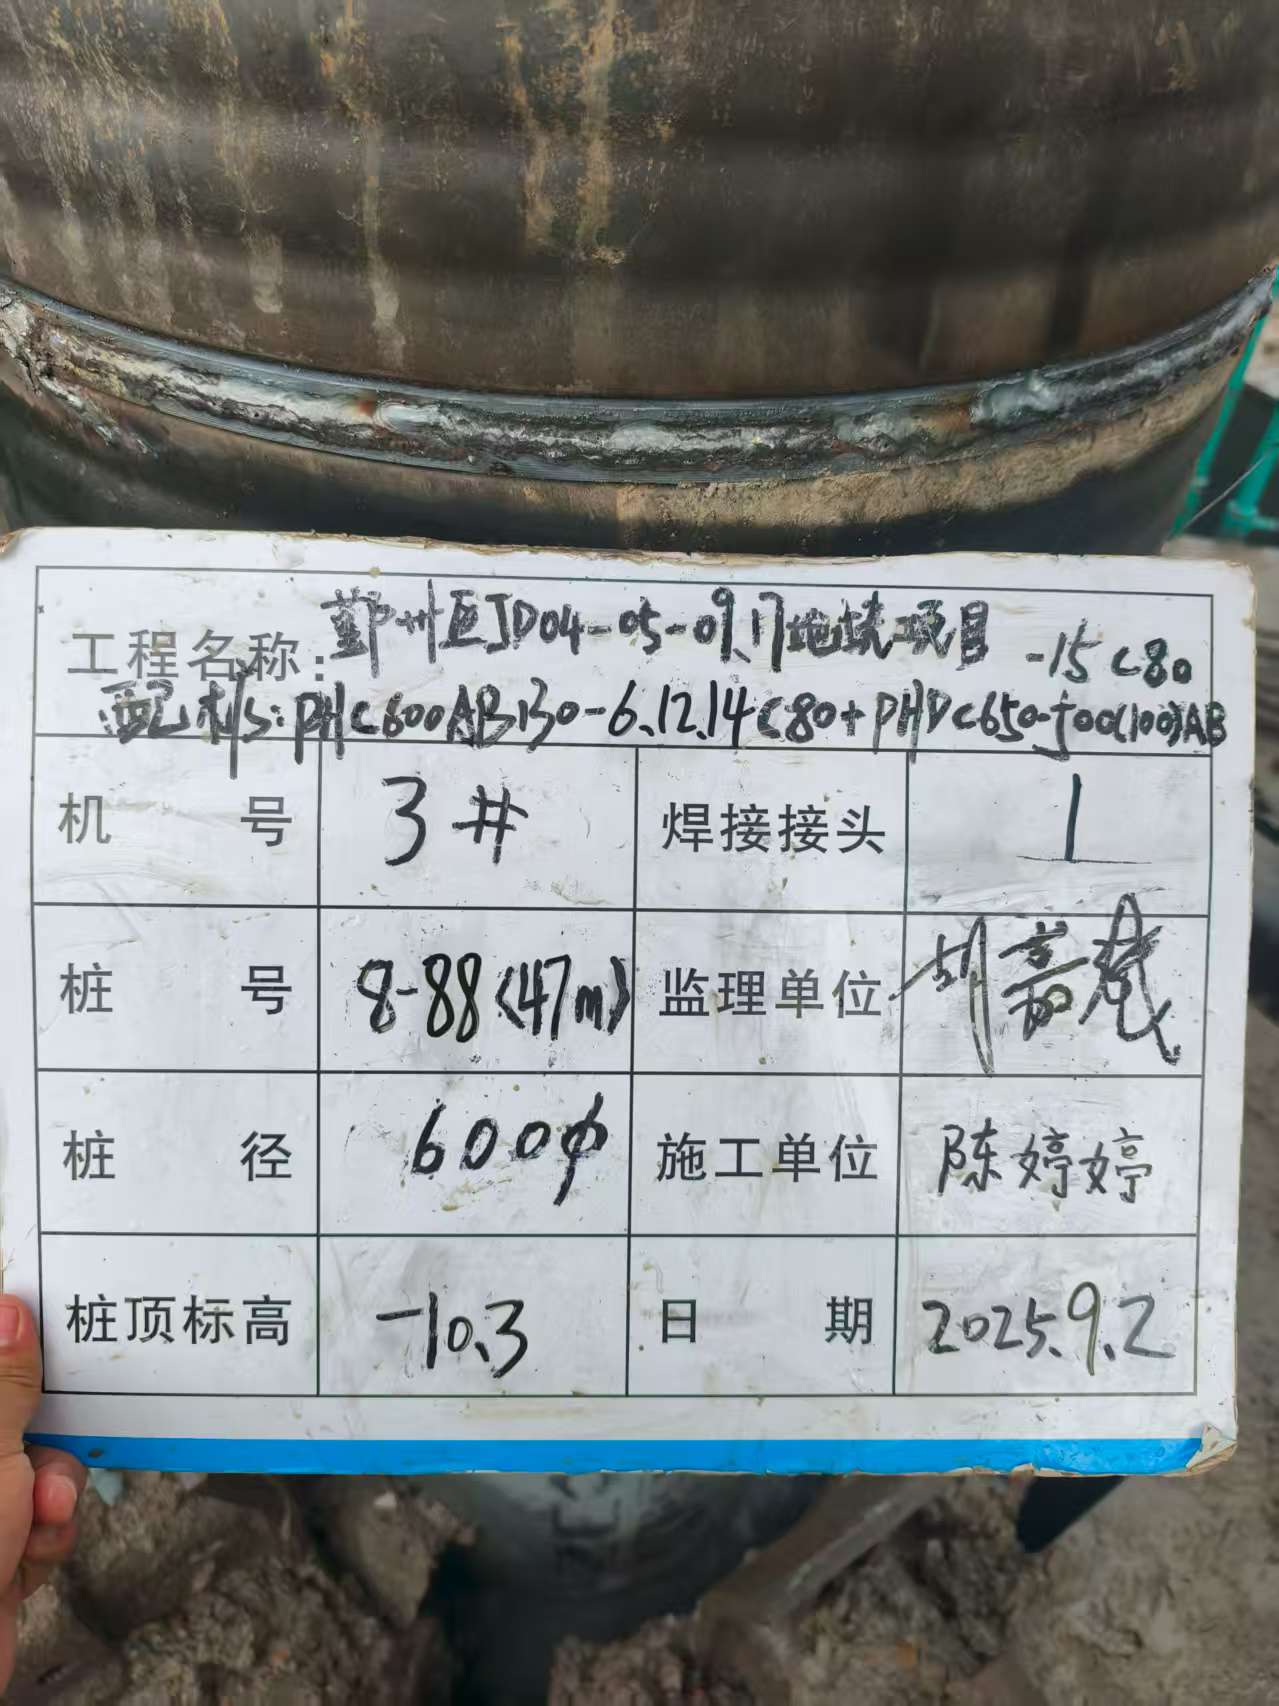 工程名称: 鄞州区JD04-05-09.17地块项目
配桩: PHC600AB130-6.12.14C80+PHDC650-500(100)AB
-15 C80
机号 3# 焊接接头 1
桩号 8-88(47m) 监理单位 胡嘉
桩径 600φ 施工单位 陈婷婷
桩顶标高 -10.3 日期 2025.9.2